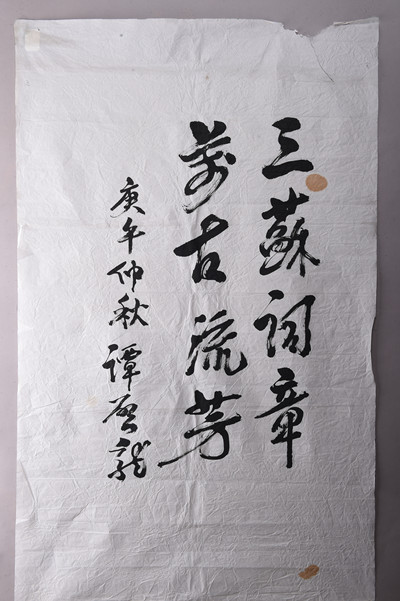 三蘇詞章
萬古流芳
庚午仲秋 譚啓龍